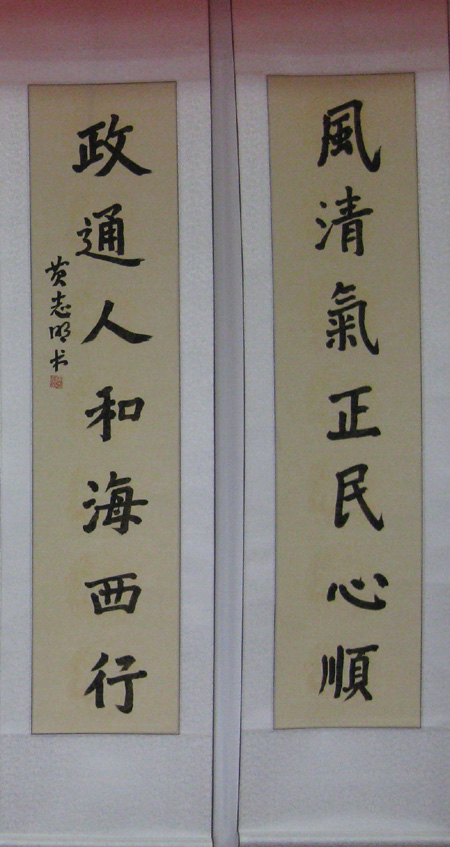 風清氣正民心順
政通人和海西行
黄志明书